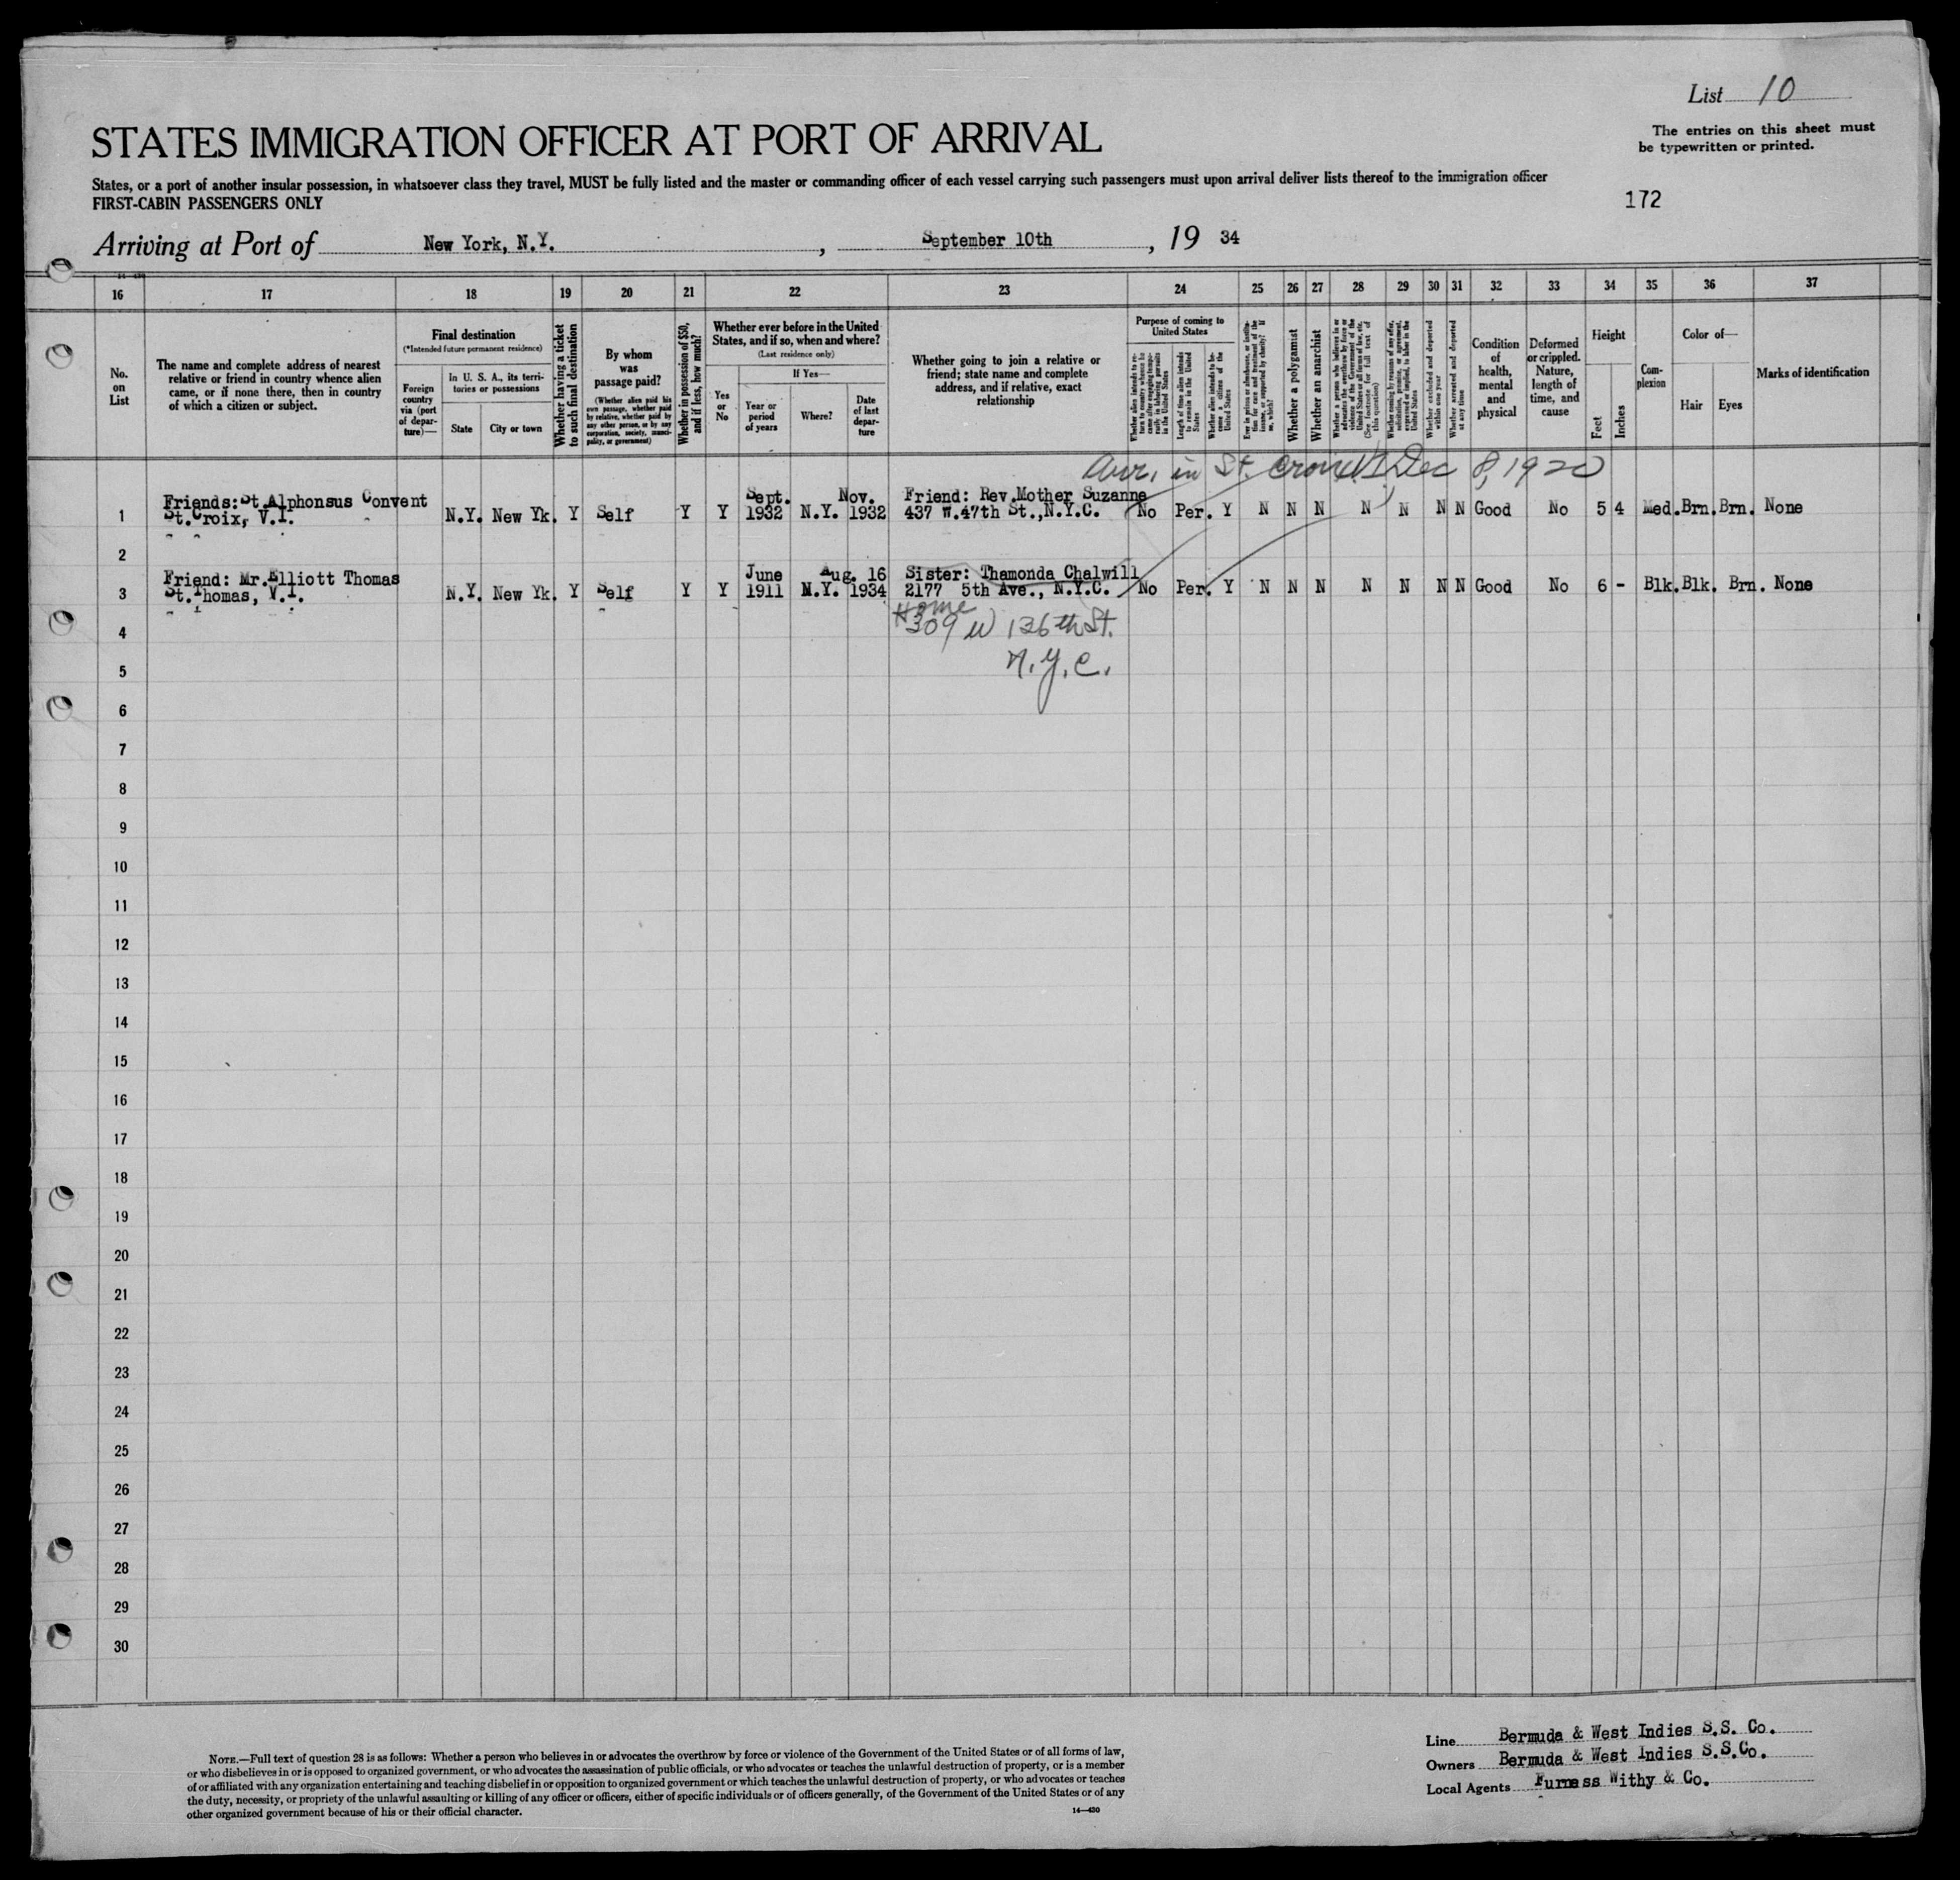 List 10
STATES IMMIGRATION OFFICER AT PORT OF ARRIVAL
The entries on this sheet must
be typewritten or printed.
States, or a port of another insular possession, in whatsoever class they travel, MUST be fully listed and the master or commanding officer of each vessel carrying such passengers must upon arrival deliver lists thereof to the immigration officer
FIRST-CABIN PASSENGERS ONLY
172
Arriving at Port of New York, N.Y. , September 10th , 19 34
16 17 18 19 20 21 22 23 24 25 26 27 28 29 30 31 32 33 34 35 36 37
No.
on
List
The name and complete address of nearest
relative or friend in country whence alien
came, or if none there, then in country
of which a citizen or subject.
Final destination
(*Intended future permanent residence)
Foreign
country
via (port
of depar-
ture)—
In U. S. A., its terri-
tories or possessions
State
City or town
Whether having a ticket
to such final destination
By whom
was
passage paid?
(Whether alien paid his
own passage, whether paid
by relative, whether paid by
any other person, or by any
corporation, society, munici-
pality, or government)
Whether in possession of $50,
and if less, how much?
Whether ever before in the United
States, and if so, when and where?
(Last residence only)
Yes
or
No
If Yes—
Year or
period
of years
Where?
Date
of last
depar-
ture
Whether going to join a relative or
friend; state name and complete
address, and if relative, exact
relationship
Purpose of coming to
United States
Whether alien intends to re-
turn to country whence he
came after engaging tempo-
rarily in laboring pursuits
in the United States
Length of time alien intends
to remain in the United
States
Whether alien intends to be-
come a citizen of the
United States
Ever in prison or almshouse, or institu-
tion for care and treatment of the
insane, or supported by charity? If
so, which?
Whether a polygamist
Whether an anarchist
Whether a person who believes in or
advocates the overthrow by force or
violence of the Government of the
United States or all forms of law, etc.
(See footnote for full text of
this question)
Whether coming by reasons of any offer,
solicitation, promise, or agreement,
expressed or implied, to labor in the
United States
Whether excluded and deported
within one year
Whether arrested and deported
at any time
Condition
of
health,
mental
and
physical
Deformed
or crippled.
Nature,
length of
time, and
cause
Height
Feet
Inches
Com-
plexion
Color of—
Hair
Eyes
Marks of identification
Arr. in St. Croix V.I Dec 8, 1920
Friends: St. Alphonsus Convent Sept. Nov. Friend: Rev. Mother Suzanne
1 St. Croix, V.I. N.Y. New Yk. Y Self Y Y 1932 N.Y. 1932 437 W. 47th St., N.Y.C. No Per. Y N N N N N N N Good No 5 4 Med. Brn. Brn. None
2
Friend: Mr. Elliott Thomas June Aug. 16 Sister: Thamonda Chalwill
3 St. Thomas, V.I. N.Y. New Yk. Y Self Y Y 1911 N.Y. 1934 2177 5th Ave., N.Y.C. No Per. Y N N N N N N N Good No 6 - Blk. Blk. Brn. None
Home
4 309 W 136th St.
5 N.Y.C.
6
7
8
9
10
11
12
13
14
15
16
17
18
19
20
21
22
23
24
25
26
27
28
29
30
NOTE.—Full text of question 28 is as follows: Whether a person who believes in or advocates the overthrow by force or violence of the Government of the United States or of all forms of law,
or who disbelieves in or is opposed to organized government, or who advocates the assassination of public officials, or who advocates or teaches the unlawful destruction of property, or is a member
of or affiliated with any organization entertaining and teaching disbelief in or opposition to organized government or which teaches the unlawful destruction of property, or who advocates or teaches
the duty, necessity, or propriety of the unlawful assaulting or killing of any officer or officers, either of specific individuals or of officers generally, of the Government of the United States or of any
other organized government because of his or their official character.
14—430
Line Bermuda & West Indies S.S. Co.
Owners Bermuda & West Indies S.S.Co.
Local Agents Furness Withy & Co.